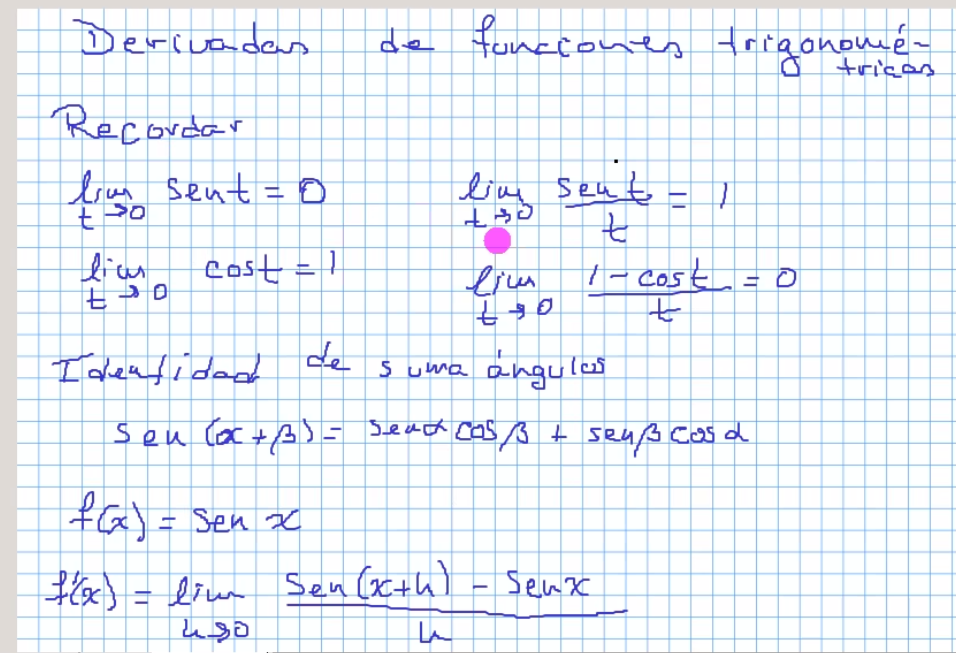 Derivadas de funciones trigonomé-
tricas
Recordar
lim t→0 sen t = 0    lim t→0 sen t / t = 1
lim t→0 cos t = 1    lim t→0 (1 - cos t) / t = 0
Identidad de suma ángulos
sen (α+β) = senα cos β + senβ cos α
f(x) = sen x
f'(x) = lim h→0 (Sen(x+h) - Sen x) / h